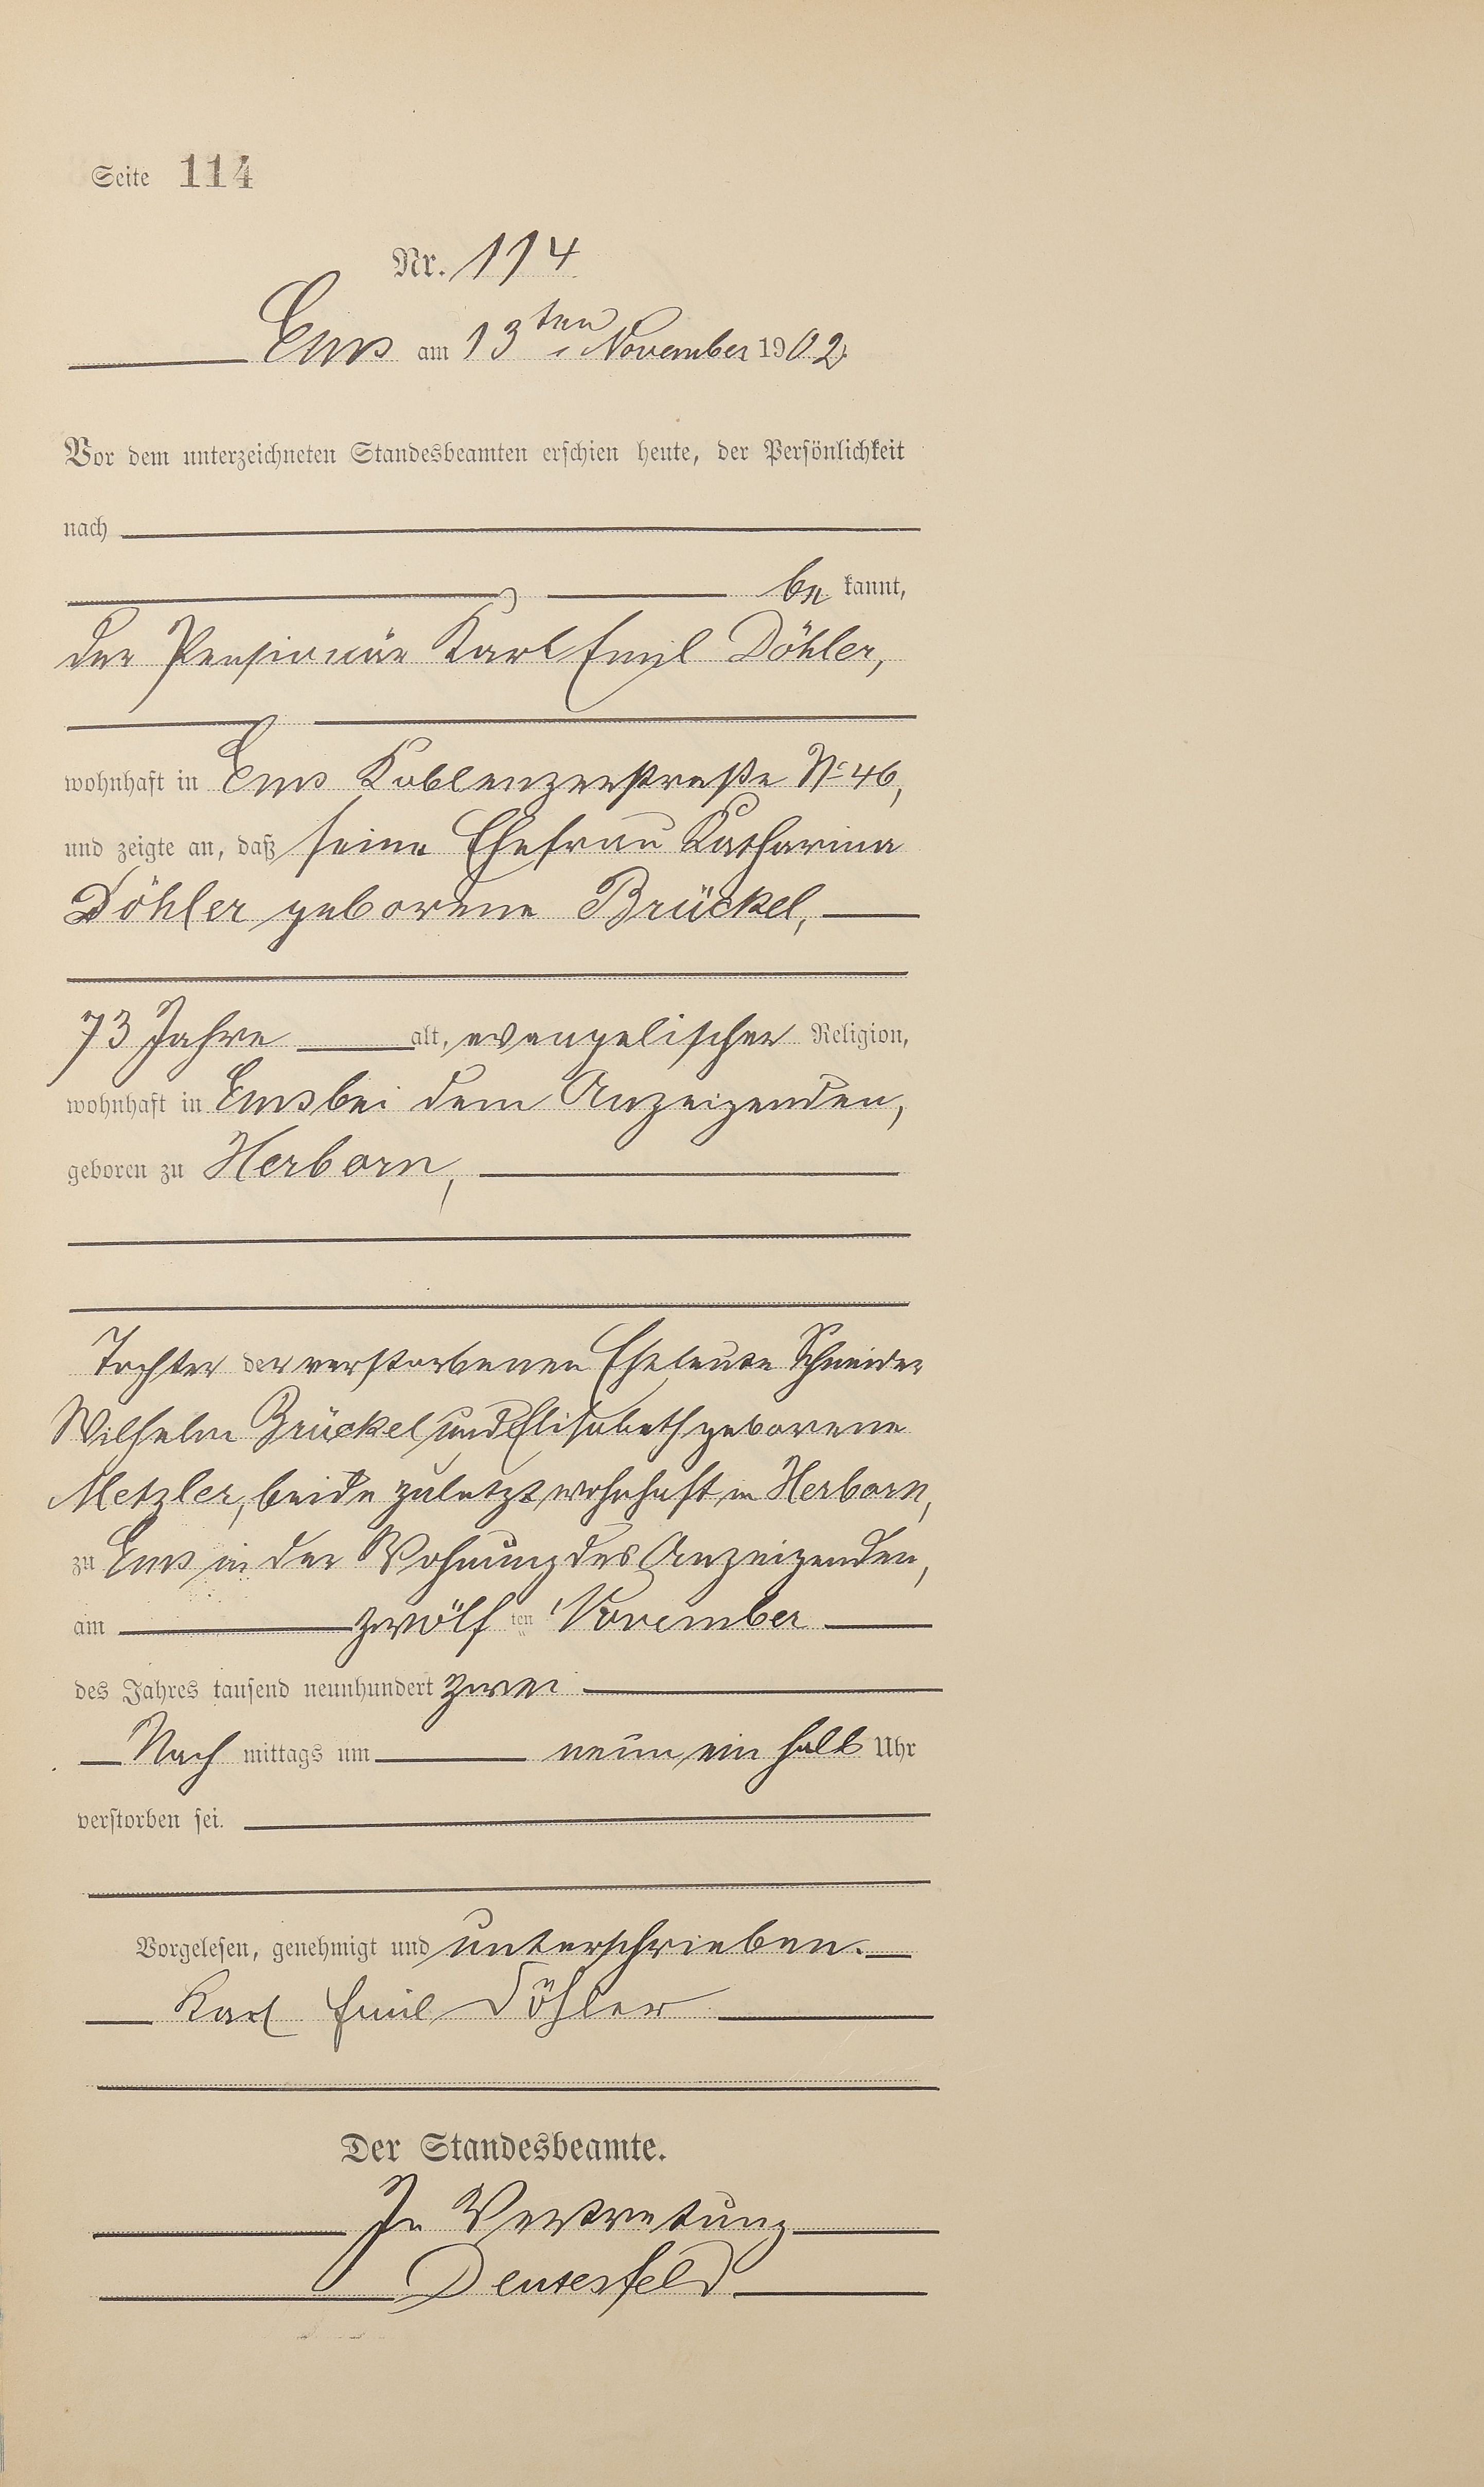 Seite 114
Nr. 114
Ems am 13ten November 1902.
Vor dem unterzeichneten Standesbeamten erschien heute, der Persönlichkeit
nach
be kannt,
der Pensionär Karl Emil Döhler,
wohnhaft in Ems Koblenzerstraße No 46,
und zeigte an, daß seine Ehefrau Katharina
Döhler geborene Brückel,
73 Jahre alt, evangelischer Religion,
wohnhaft in Ems bei dem Anzeigenden,
geboren zu Herborn,
Tochter der verstorbenen Eheleute Schneider
Wilhelm Brückel und Elisabeth geborene
Metzler, beide zuletzt wohnhaft in Herborn,
zu Ems in der Wohnung des Anzeigenden,
am zwölf ten November
des Jahres tausend neunhundert zwei
Nach mittags um neun ein halb Uhr
verstorben sei.
Vorgelesen, genehmigt und unterschrieben.
Karl Emil Döhler
Der Standesbeamte.
In Vertretung
Deutesfeld